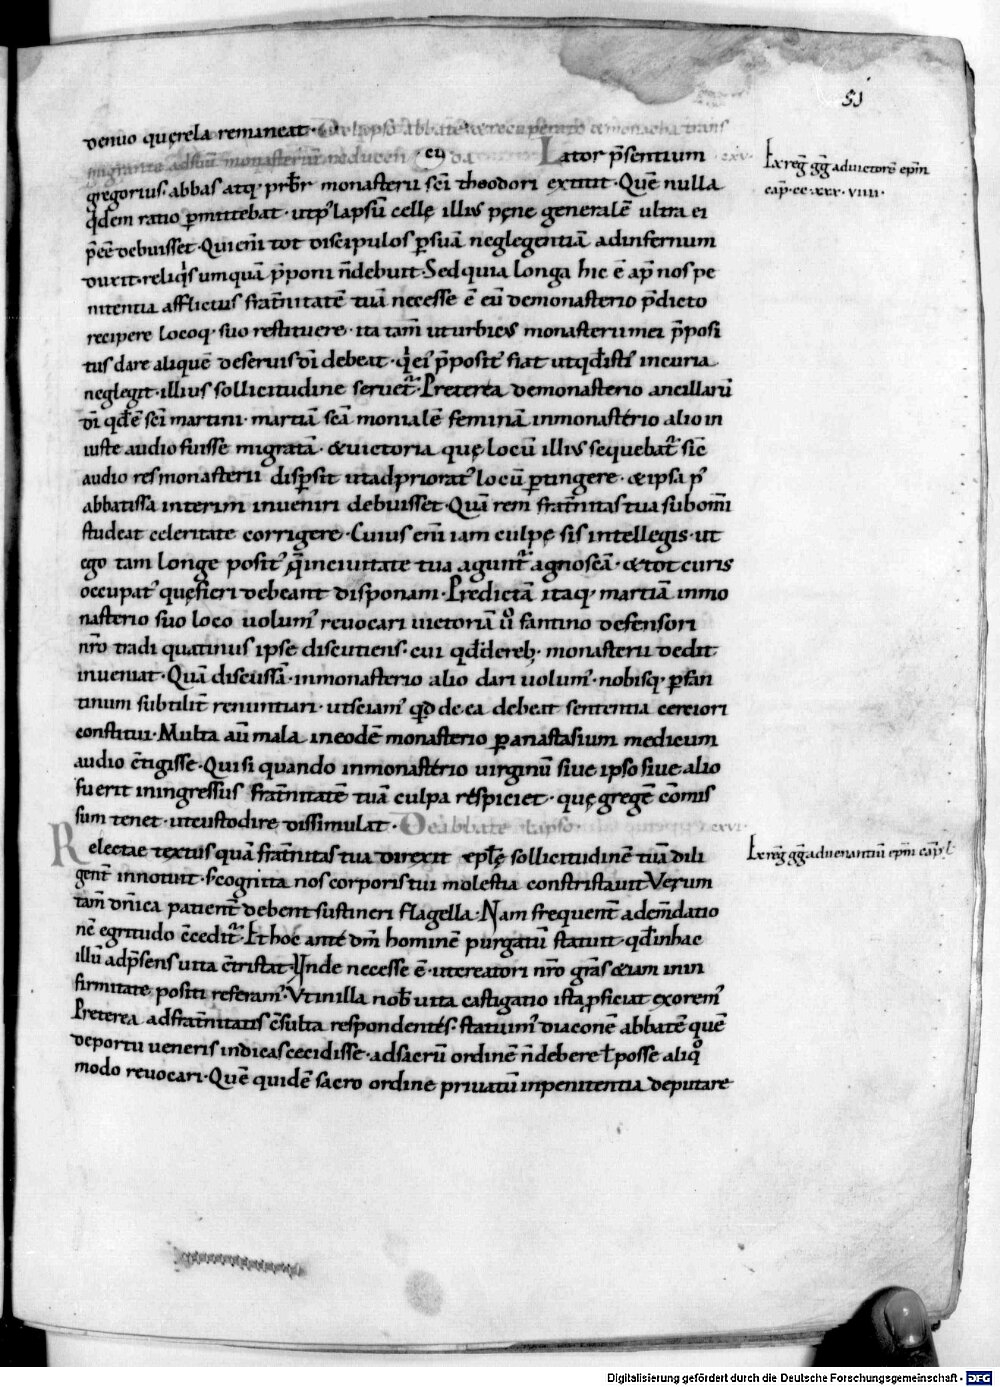 51
denuo quęrela remaneat · De lapso abbate & recuperato & monacha trans
migrante ad suũ monasteriũ reducen cu da Lator p̃sentium cxv.
gregorius · abbas atq· prb̃r monasterii sc̃i theodori extitit · Quẽ nulla
q̇dem ratio ꝑmittebat · utp̃ lapsũ cellę illi᷒ pęne generalẽ ultra ei
p̃eẽ debuisset · Qui eni᷒ tot discipulos ꝑsuã neglegentiã ad infernum
duxit · reliq̇s umquã p̃poni ñ debuit · Sed quia longa hic ẽ ap̃ nos pe
nitentia afflictus frat̃nitatẽ tuã necesse ẽ eũ de monasterio p̃dicto
recipere locoq· suo restituere · ita tam̃ ut urbicus monasterii mei p̃posi
tus dare aliquẽ de servis dĩ debeat · q̇ ei p̃posit᷒ fiat utqd̃ isti᷒ incuria
neglegit · illius sollicitudine servet᷒ · Preterea de monasterio ancillarũ
dĩ qd̃ ẽ sc̃i martini · martiã sc̃ã monialẽ feminã in monasterio alio in
iuste audio fuisse migratã · & victoria quę locũ illi᷒ sequebat᷒ sic̃
audio res monasterii disꝑsit ut ad priorat᷒ locũ ꝑtingere · & ipsa p̃
abbatissa interim inveniri debuisset · Quã rem frat̃nitas tua sub om̃i
studeat celeritate corrigere · Cuius eni᷒ iam culpę sis intellegis · ut
ego tam longe posit᷒ q̃ in civitate tua agunt᷒ agnoscã · & tot curis
occupat᷒ quę fieri debeant disponam · Predictã itaq· martiã in mo
nasterio suo loco volum᷒ revocari victoriã ůo fantino defensori
nr̃o tradi quatinus ipse discutiens · cui qd̃ de reb; · monasterii dedit
inveniat · Quã discussã · in monasterio alio dari volum᷒ · nobisq· ꝑ fan
tinum subtilit̃ renuntiari · ut sciam᷒ qd̃ de ea debeat sententia certiori
constitui · Multa aũ mala in eodẽ monasterio ꝑ anastasium medicum
audio c̃tigisse · Qui si quando in monasterio virginũ sive ipso sive alio
fuerit in ingressus frat̃nitatẽ tuã culpa respiciet · quę gregẽ cõmis
sum tenet · ut custodire dissimulat · De abbate lapso · cxvi.
Relectae textus quã frat̃nitas tua direxit epl̃ę sollicitudinẽ tuã dili
gent̃ innotuit · S; cognita nos corporis tui molestia constristavit Verum
tam̃ dñica patient̃ debent sustineri flagella · Nam frequent̃ ad em̃datio
nẽ egritudo c̃cedit᷒ · Et hoc ante dm̃ hominẽ purgatũ statuit · qd̃ in hac
illũ ad p̃sens vita c̃tristat · Unde necesse ẽ · ut creatori nr̃o gr̃as &iam in in
firmitate positi referam᷒ · Ut in illa nob̃ vita castigatio ista ꝓficiat ex orem᷒
Preterea ad frat̃nitatis c̃sulta respondentes · statuim᷒ diaconẽ abbatẽ quẽ
de portu veneris indicas cecidisse · ad sacrũ ordinẽ ñ debere ł posse aliq̊
modo revocari · Quẽ quidẽ sacro ordine privatũ in penitentia deputare
Ex reg̃ gg̃ ad victorẽ ep̃m
cap̃ · cc · xxx · viiii ·
Ex reg̃ gg̃ ad venantiũ ep̃m cap̃